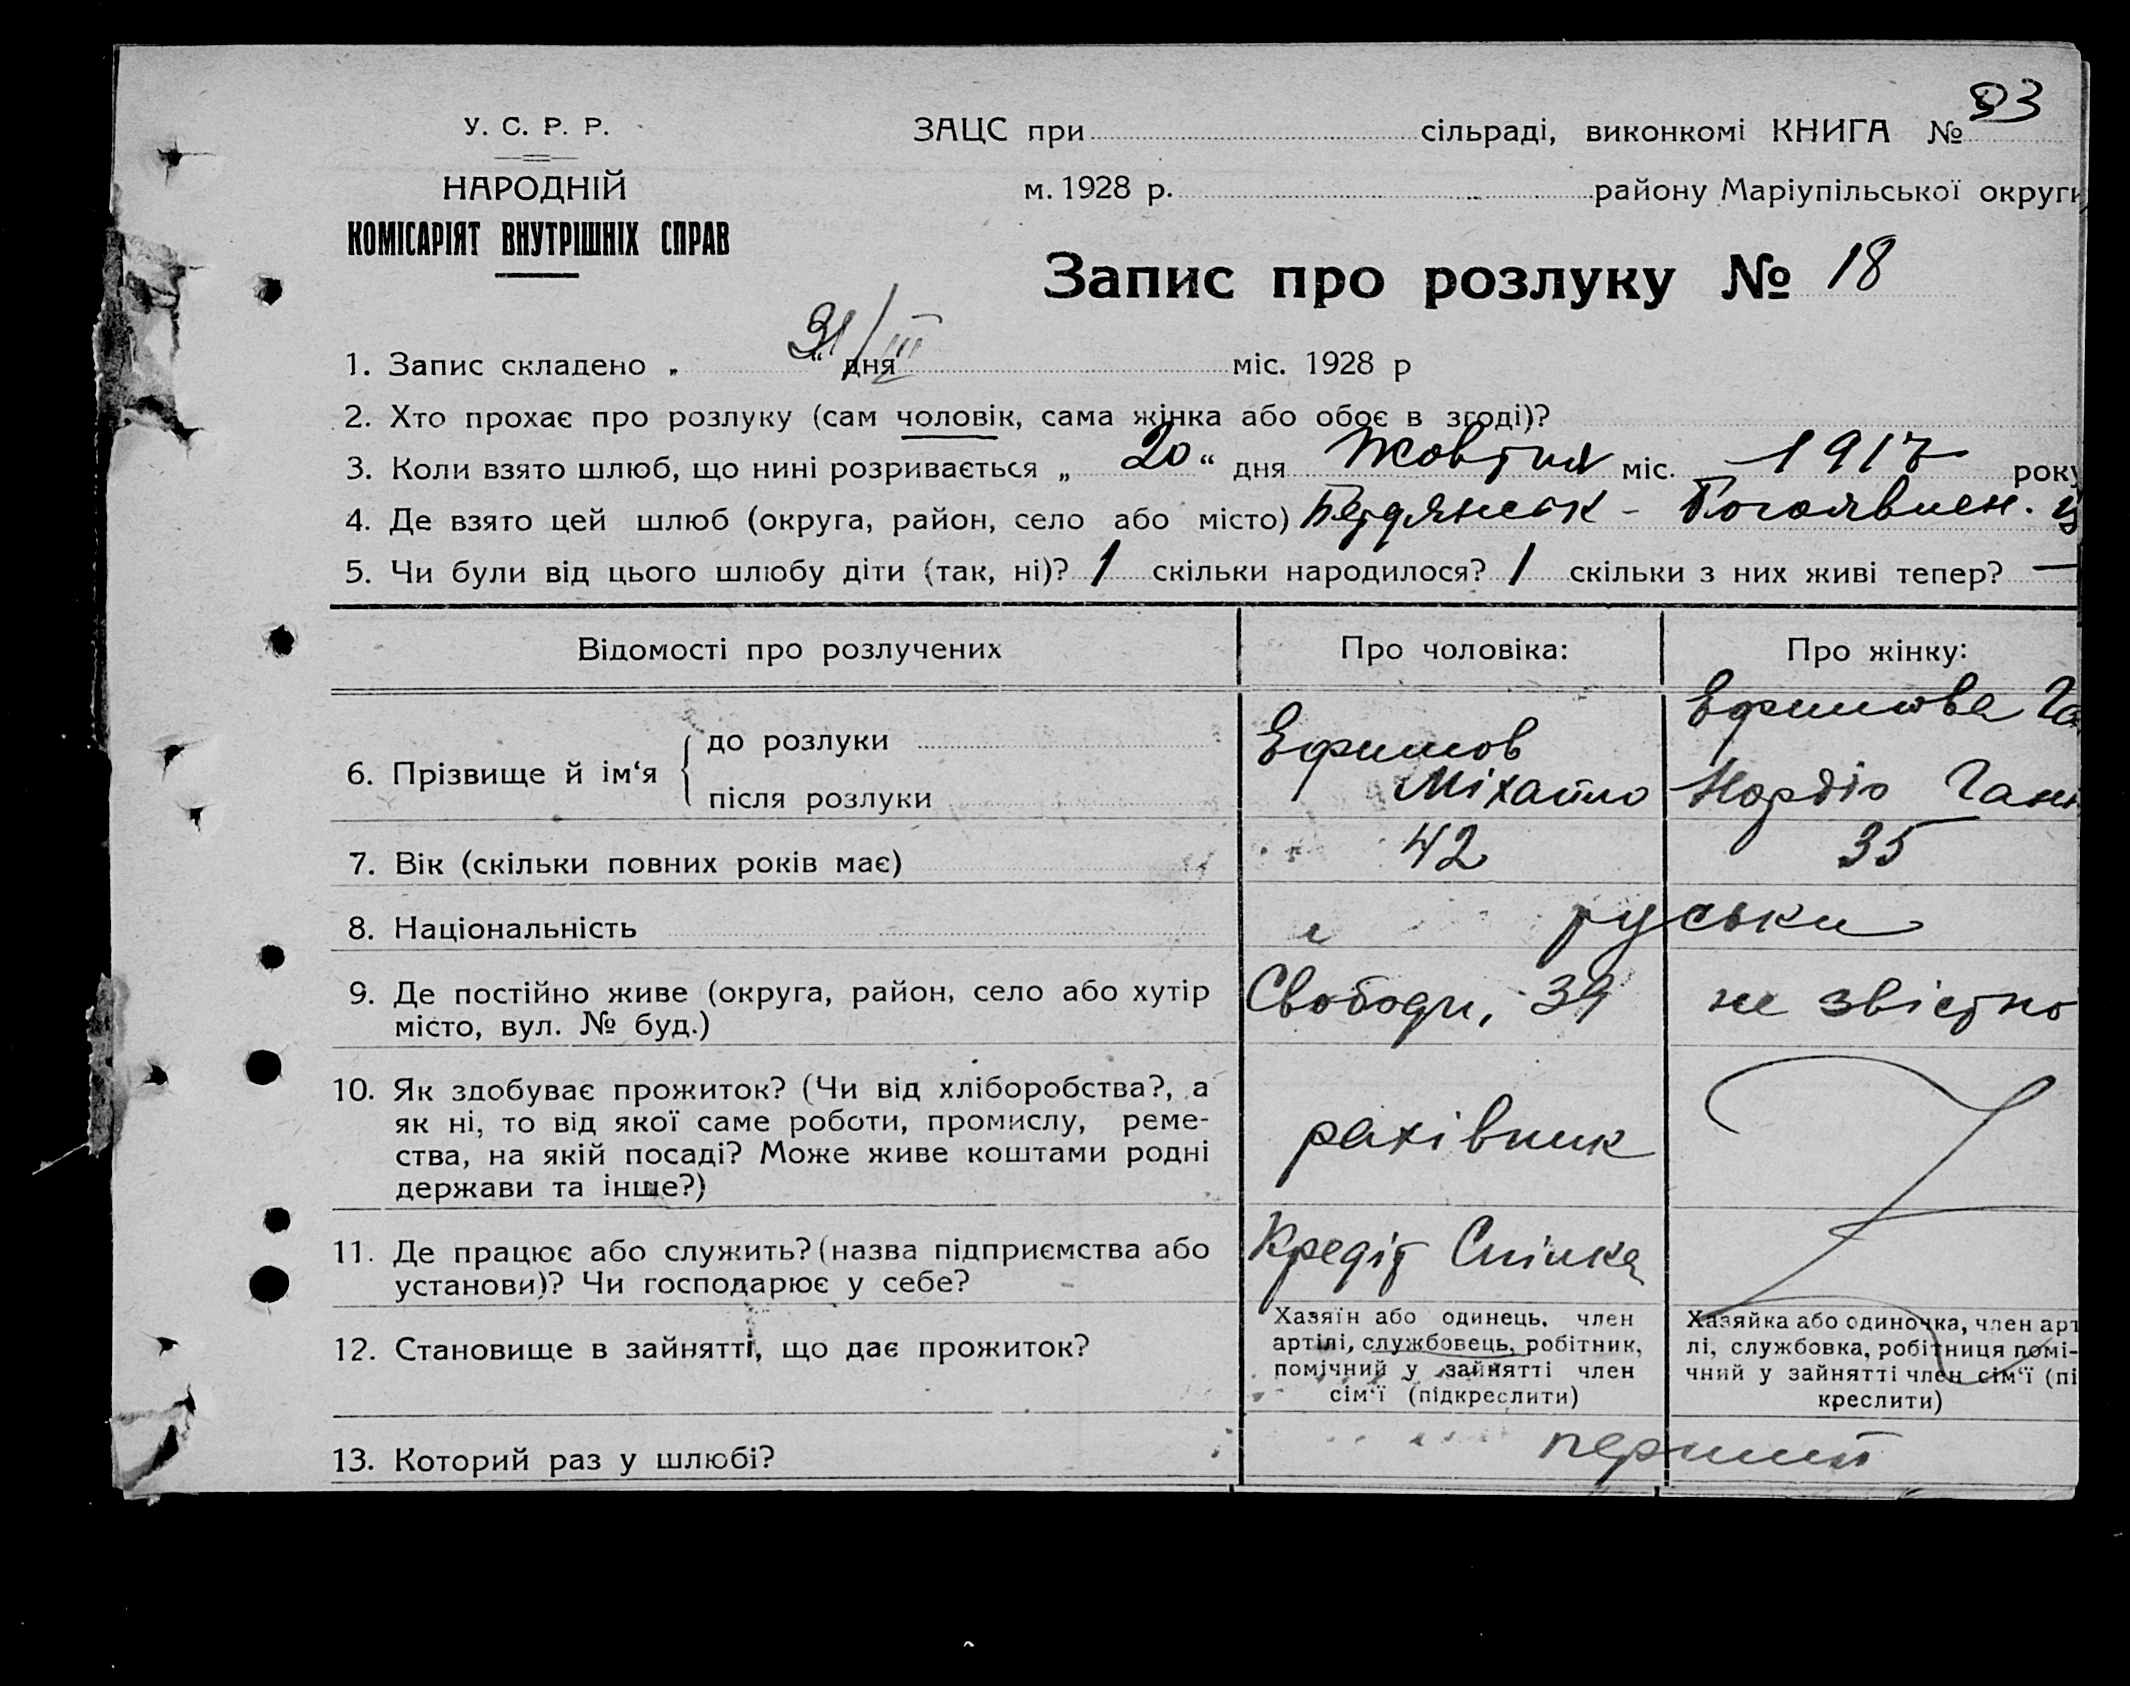 93
У. С. Р. Р.
НАРОДНІЙ
КОМІСАРІЯТ ВНУТРІШНІХ СПРАВ
ЗАЦС при сільраді, виконкомі КНИГА №
м. 1928 р. району Маріупільської округи
Запис про розлуку № 18
1. Запис складено „ 31/III “ дня міс. 1928 р
2. Хто прохає про розлуку (сам чоловік, сама жінка або обоє в згоді)?
3. Коли взято шлюб, що нині розривається „ 20 “ дня Жовтня міс. 1917 року
4. Де взято цей шлюб (округа, район, село або місто) Бердянськ - Богоявлен. ц
5. Чи були від цього шлюбу діти (так, ні)? 1 скільки народилося? 1 скільки з них живі тепер? —
Відомості про розлучених Про чоловіка: Про жінку:
6. Прізвище й ім‘я до розлуки Ефимов Ефимова Га
після розлуки Міхайло Нордіо Ганн
7. Вік (скільки повних років має) 42 35
8. Національність руськи
9. Де постійно живе (округа, район, село або хутір
місто, вул. № буд.) Свободи, 39 не звістно
10. Як здобуває прожиток? (Чи від хліборобства?, а
як ні, то від якої саме роботи, промислу, реме-
ства, на якій посаді? Може живе коштами родні
держави та інше?) рахівник
11. Де працює або служить? (назва підприємства або
установи)? Чи господарює у себе? Кредіт Спілка
12. Становище в зайнятті, що дає прожиток?
Хазяїн або одинець. член
артілі, службовець, робітник,
помічний у зайнятті член
сім‘ї (підкреслити)
Хазяйка або одиночка, член арт
лі, службовка, робітниця помі-
чний у зайнятті член сім‘ї (пі
креслити)
13. Которий раз у шлюбі? перший